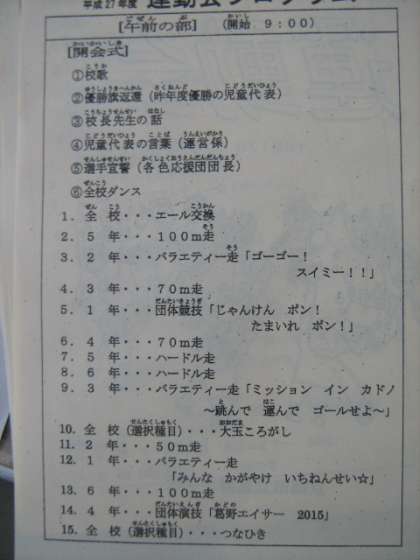 平成27年度 運動会プログラム
[午前の部] (開始 9:00)
[開会式]
①校歌
②優勝旗返還(昨年度優勝の児童代表)
③校長先生の話
④児童代表の言葉(運営係)
⑤選手宣誓(各色応援団団長)
⑥全校ダンス
1. 全 校・・・エール交換
2. 5 年・・・100m走
3. 2 年・・・バラエティー走「ゴーゴー!
スイミー!!」
4. 3 年・・・70m走
5. 1 年・・・団体競技「じゃんけん ポン!
たまいれ ポン!」
6. 4 年・・・70m走
7. 5 年・・・ハードル走
8. 6 年・・・ハードル走
9. 3 年・・・バラエティー走「ミッション イン カドノ
~跳んで 運んで ゴールせよ~」
10. 全 校(選択種目)・・・大玉ころがし
11. 2 年・・・50m走
12. 1 年・・・バラエティー走
「みんな かがやけ いちねんせい☆」
13. 6 年・・・100m走
14. 4 年・・・団体演技「葛野エイサー 2015」
15. 全 校(選択種目)・・・つなひき